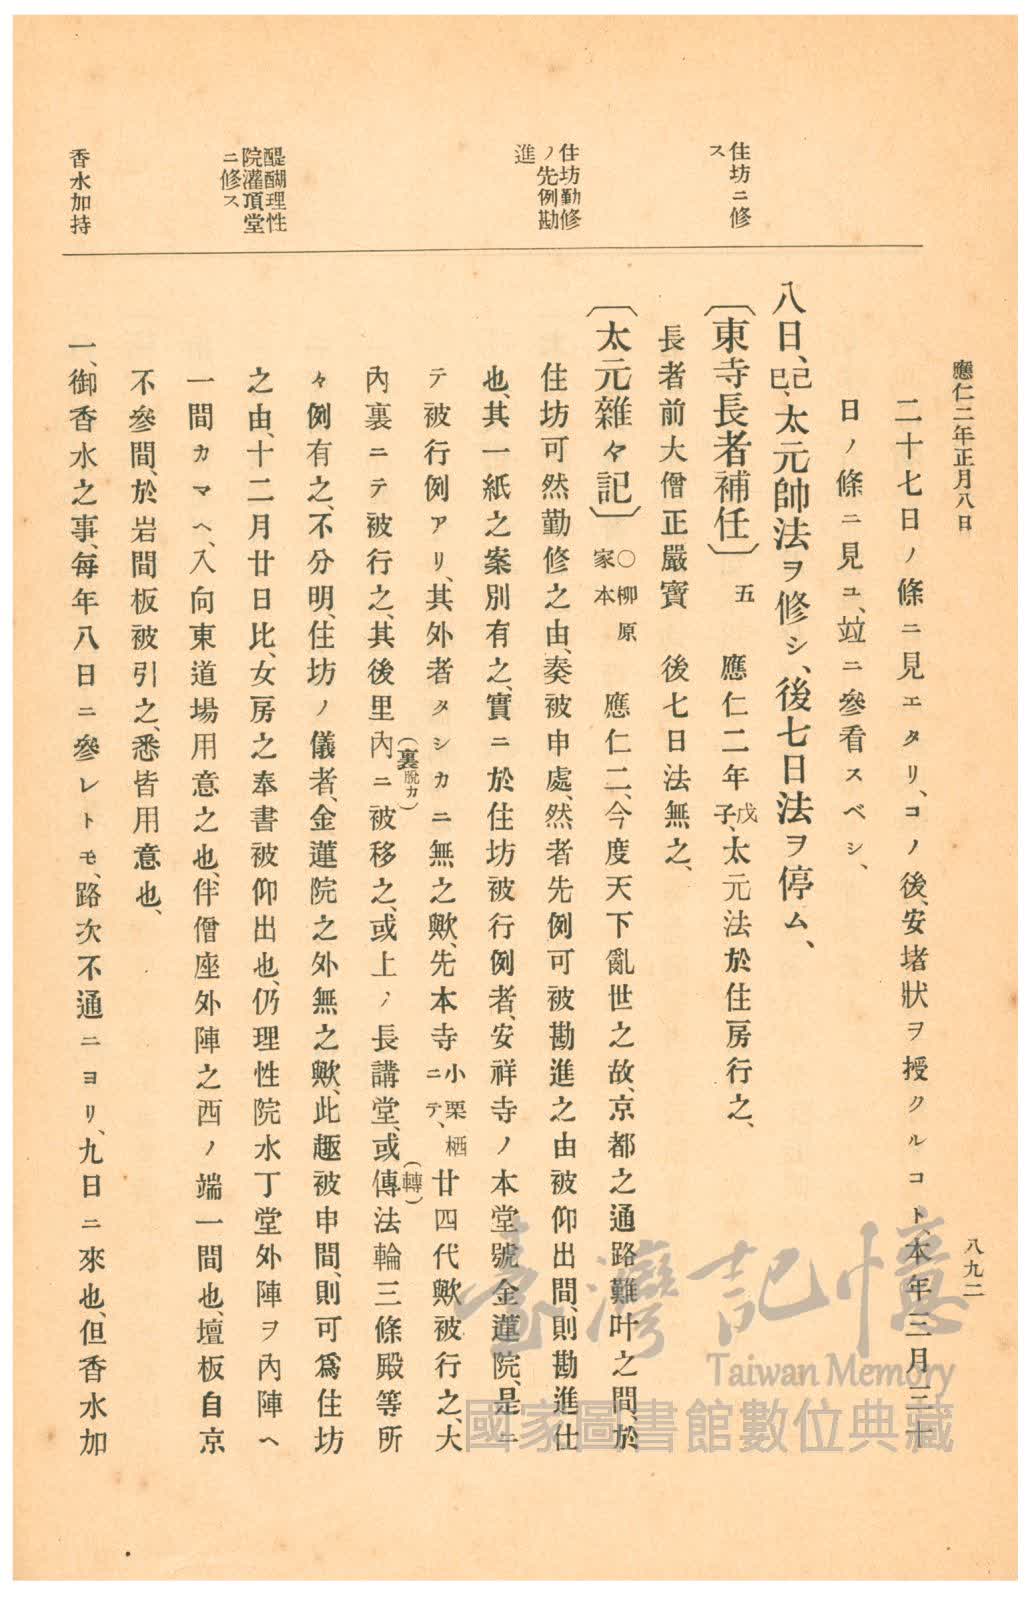 應仁二年正月八日
八九二
二十七日ノ條ニ見エタリ、コノ後、安堵狀ヲ授クルコト、本年三月三十
日ノ條ニ見ユ、竝ニ參看スベシ、
八日、己巳、太元帥法ヲ修シ、後七日法ヲ停ム、
〔東寺長者補任〕 五 應仁二年戊子、太元法於住房行之、
長者前大僧正嚴寶 後七日法無之、
〔太元雜々記〕 ○柳原家本 應仁二、今度天下亂世之故、京都之通路難叶之間、於
住坊可然勤修之由、奏被申處、然者先例可被勘進之由被仰出間、則勘進仕
也、其一紙之案別有之、實ニ於住坊被行例者、安祥寺ノ本堂號金蓮院、是ニ
テ被行例アリ、其外者タシカニ無之歟、先本寺小栗栖ニテ、廿四代歟被行之、大
內裏ニテ被行之、其後里內(裏脫カ)ニ被移之、或上ノ長講堂、或傳(轉)法輪三條殿等所
々例有之、不分明、住坊ノ儀者、金蓮院之外無之歟、此趣被申間、則可爲住坊
之由、十二月廿日比、女房之奉書被仰出也、仍理性院水丁堂外陣ヲ內陣ヘ
一間カマヘ、入向東道場用意之也、伴僧座外陣之西ノ端一間也、壇板自京
不參間、於岩間板被引之、悉皆用意也、
一、御香水之事、每年八日ニ參レトモ、路次不通ニヨリ、九日ニ來也、但香水加
住坊ニ修
ス
住坊勤修
ノ先例勘
進
醍醐理性
院灌頂堂
ニ修ス
香水加持
臺灣記憶
Taiwan Memory
國家圖書館數位典藏